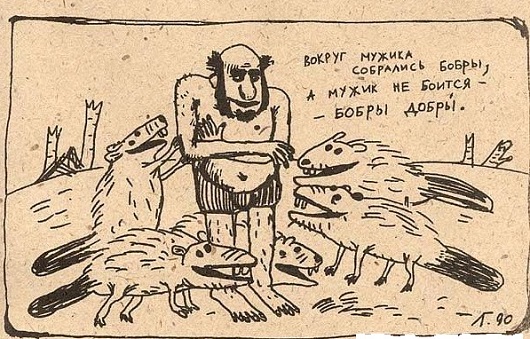 ВОКРУГ МУЖИКА
СОБРАЛИСЬ БОБРЫ,
А МУЖИК НЕ БОИТСЯ –
– БОБРЫ ДОБРЫ.
Л. 90